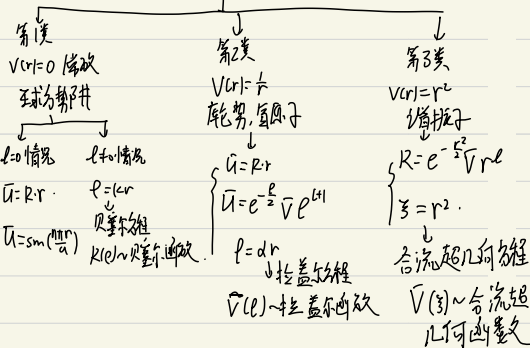 第1类
V(r)=0 常数
无球方势阱
l=0情况
Ū=R·r.
Ū=sin(nπr/a)
l≠0情况
ρ=kr
贝塞尔方程
R(ρ)~贝塞尔函数.
第2类
V(r)=1/r
库仑势,氢原子
Ū=R·r
Ū=e^{-ρ/2} V̄ ρ^{l+1}
ρ=αr
拉盖尔方程
V̄(ρ)~拉盖尔函数
第3类
V(r)=r²
谐振子
R=e^{-r²/2} V̄ r^l
ξ=r².
合流超几何方程
V̄(ξ)~合流超
几何函数